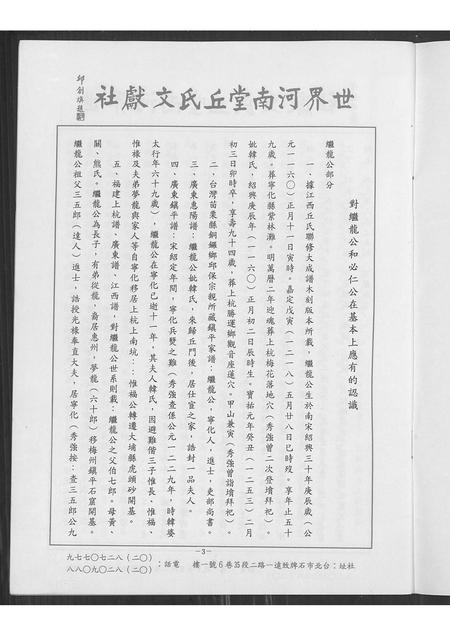 世界河南堂丘氏文獻社
邱創煥題
對繼龍公和必仁公在基本上應有的認識
繼龍公部分
一、據江西丘氏聯修大成譜木刻版本所載，繼龍公生於南宋紹興三十年庚辰歲（公
元一一六〇）正月十一日寅時。嘉定戊寅（一二一八）五月廿八日巳時歿。享年止五十
九歲。葬寧化縣紫林灘。明萬曆二年迎魂葬上杭梅花落地穴（秀強曾二次登墳拜祀）。
妣韓氏，紹興庚辰年（一一六〇）正月初二日辰時生。寶祐元年癸丑（一二五三）二月
初三日卯時卒，享壽九十四歲，葬上杭勝運鄉觀音座蓮穴。甲山兼寅（秀強曾詣墳拜祀）。
二、台灣苗栗縣銅鑼鄉邱保宗親所藏鎮平家譜：繼龍公，寧化人，進士，吏部尚書。
三、廣東惠陽譜：繼龍公妣韓氏，來歸丘門後，居仕宦之家，誥封一品夫人。
四、廣東鎮平譜：宋紹定年間，寧化兵燹之難（秀強查係公元一二二九年，時韓婆
太行年六十九歲），繼龍公在寧化已逝十一年，其夫人韓氏，因避難偕三子惟長、惟福、
惟祿及夫弟夢龍與家人等自寧化移居上杭上南坑：：惟福公轉遷大埔縣虎頭砂開基。
五、福建上杭譜、廣東譜、江西譜，對繼龍公世系則載：繼龍公之父伯七郎。母黃、
闕、熊氏。繼龍公為長子，有弟從龍，裔居惠州，夢龍（六十郎）移梅州鎮平石窟開基。
繼龍公祖父三五郎（達人）進士，誥授光祿奉直大夫，居寧化（秀強按：查三五郎公九
—3—
社址：台北市石牌致遠一路二段35巷6號一樓
電話：（〇二）八二七〇七七九
（〇二）八二〇九〇八八